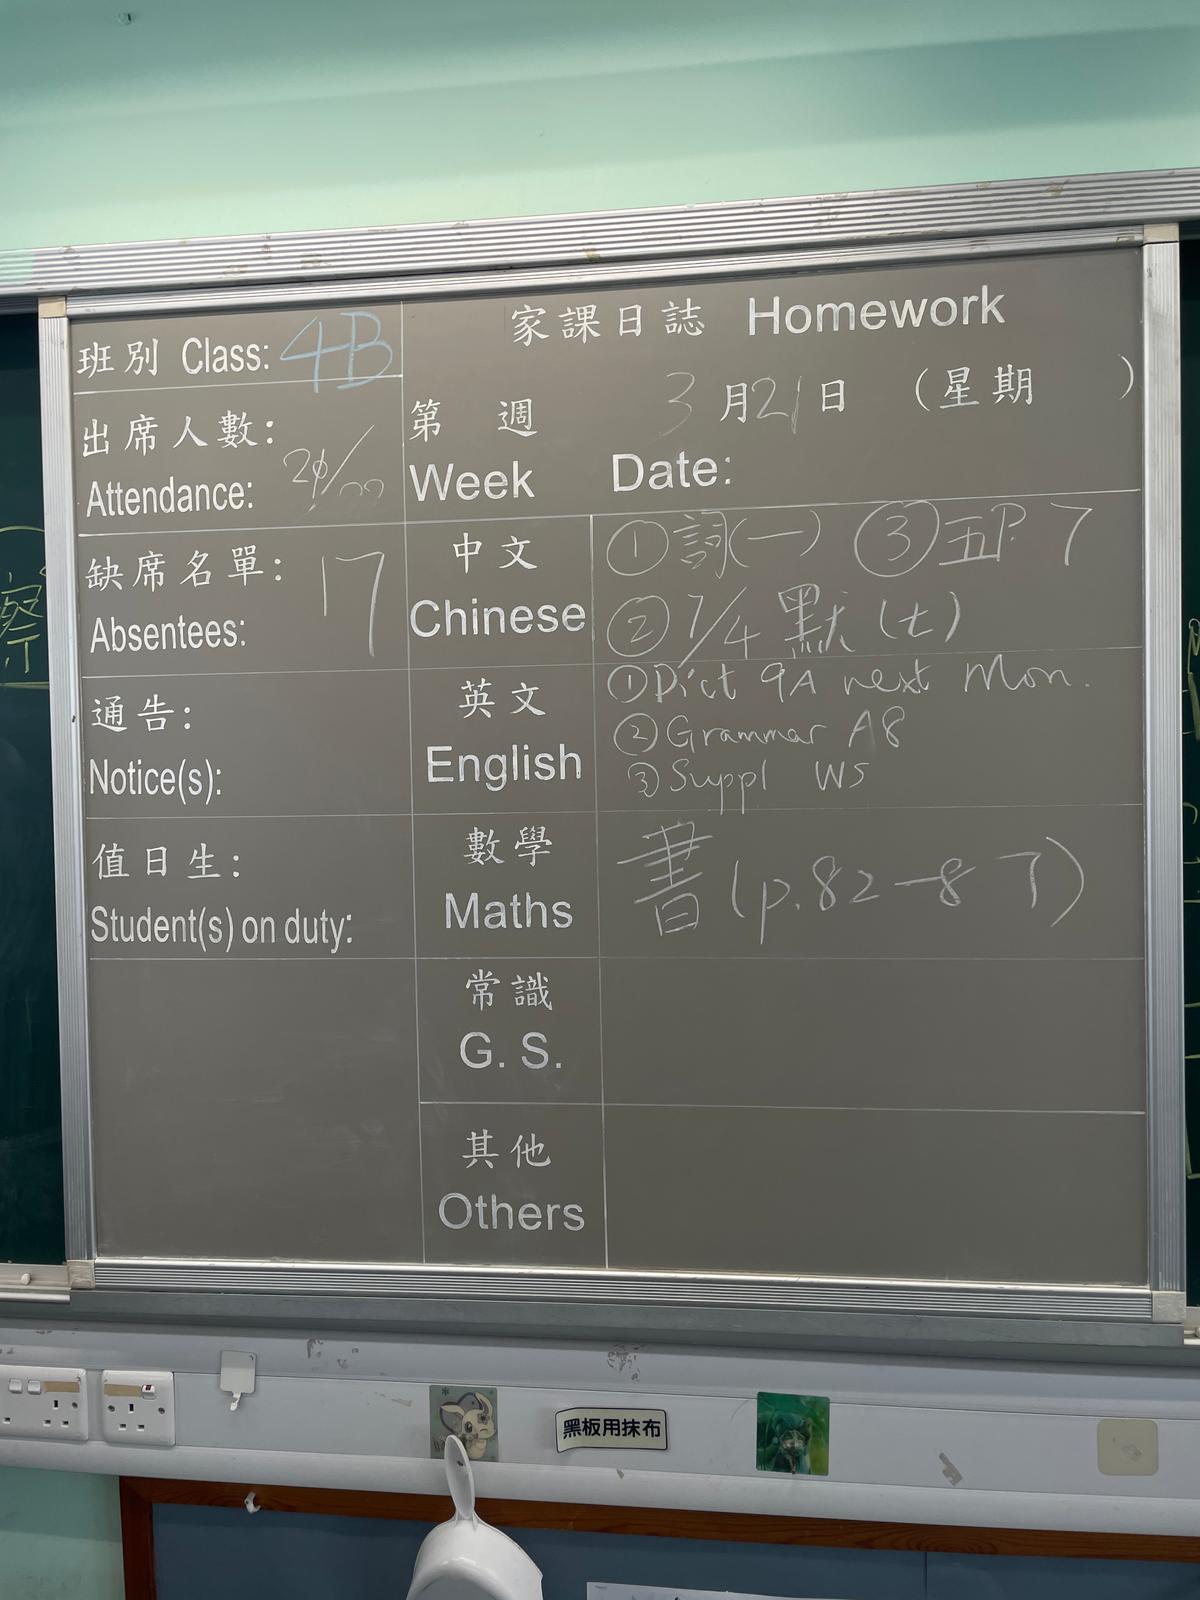 家課日誌 Homework
班別 Class: 4B
第 週 3月21日 (星期 )
Week Date:
出席人數:
Attendance:
缺席名單: 17
Absentees:
通告:
Notice(s):
值日生:
Student(s) on duty:
中文
Chinese
① 詞(一) ③ 五P. 7
② 7/4 默(七)
英文
English
① Dict 9A next Mon.
② Grammar A8
③ Suppl WS
數學
Maths
書(p.82-87)
常識
G. S.
其他
Others
察
黑板用抹布